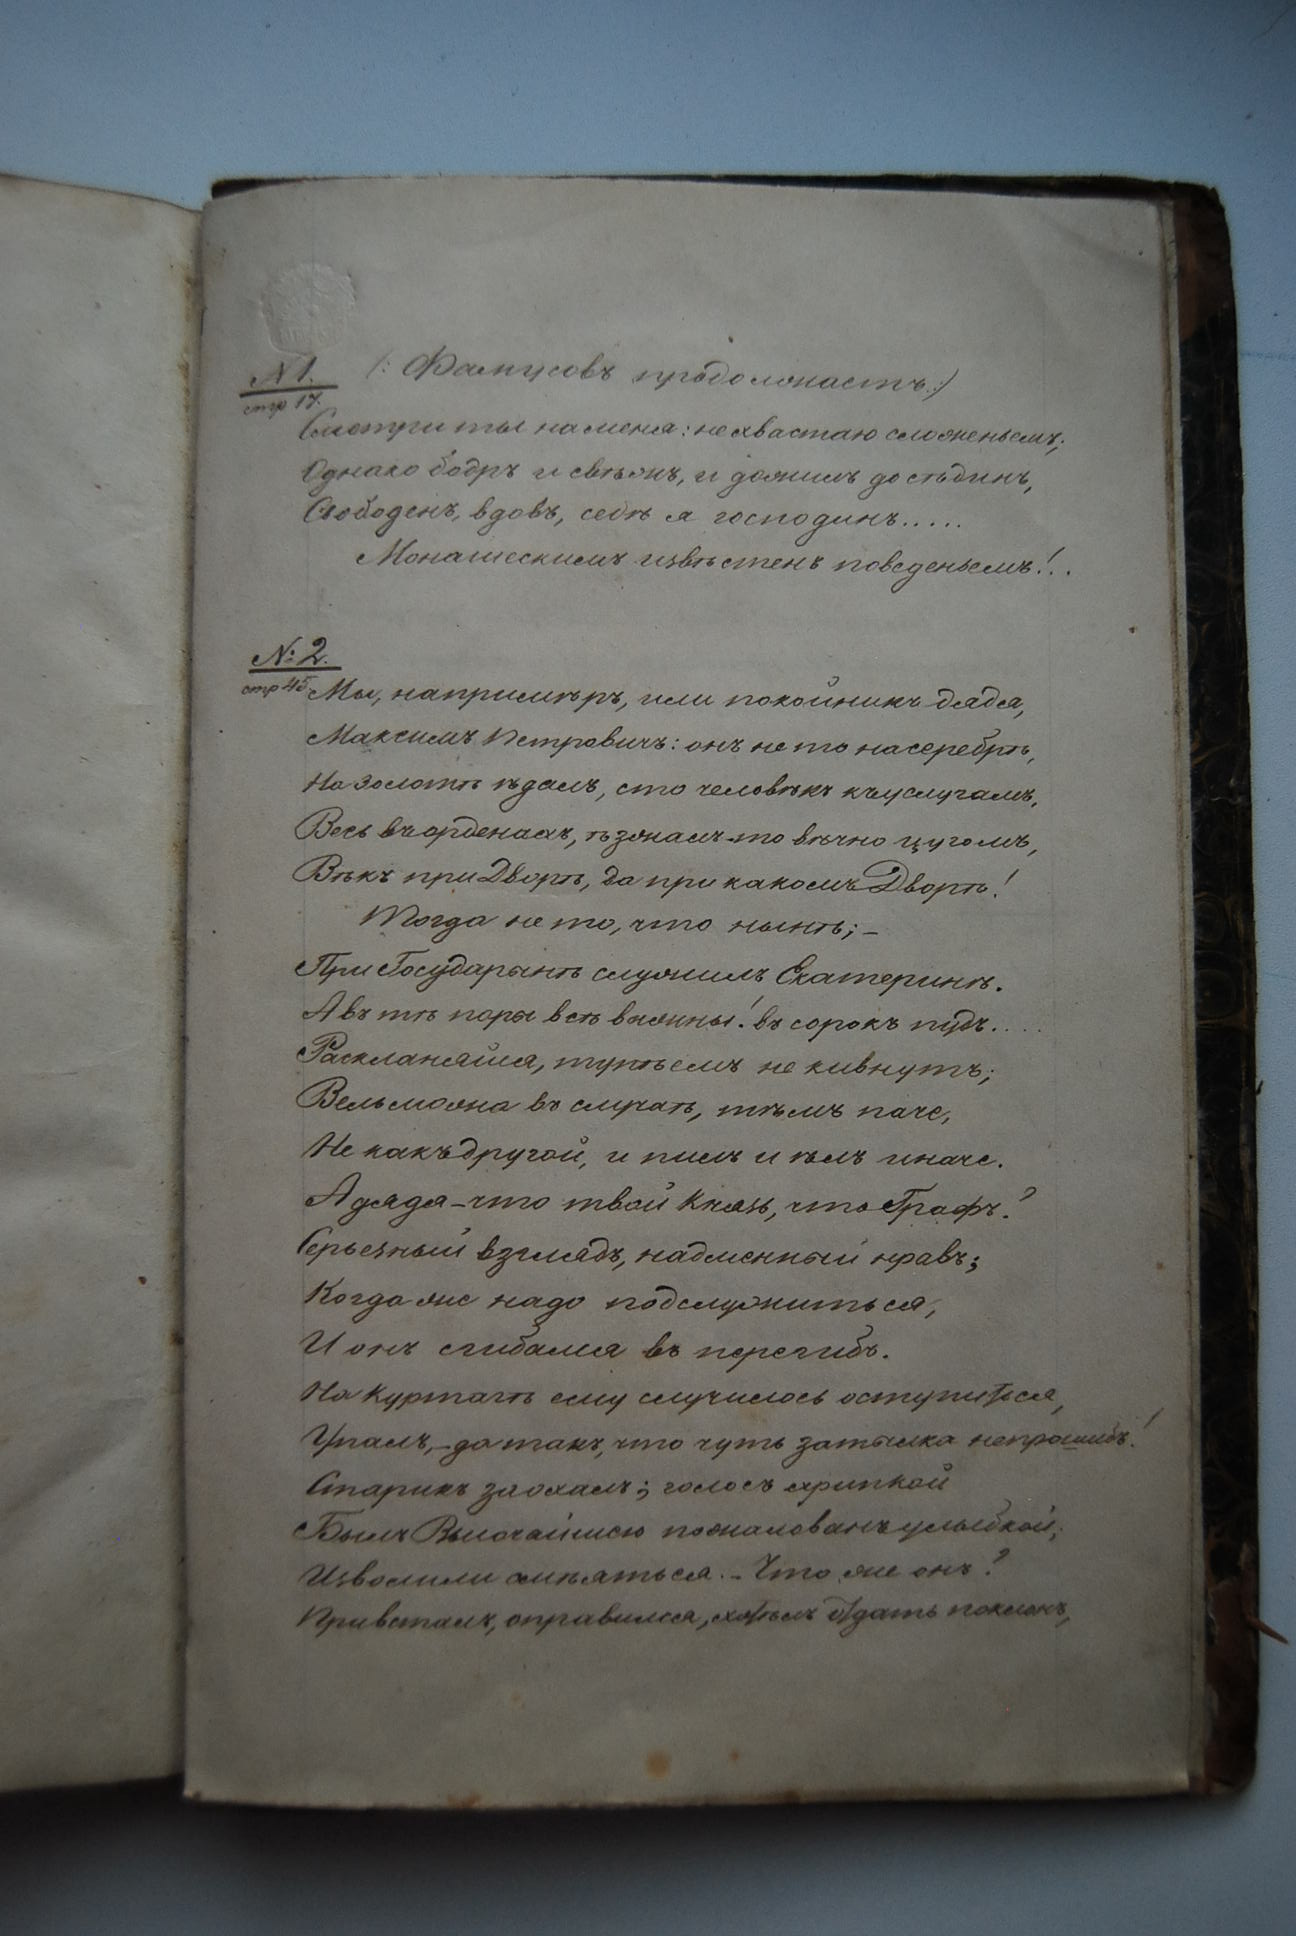 № 1. (: Фамусовъ продолжаетъ :)
стр 17.
Смотри ты на меня: не хвастаю сложеньемъ;
Однако бодръ и свѣжъ, и дожилъ до сѣдинъ,
Свободенъ, вдовъ, себѣ я господинъ.....
Монашескимъ извѣстенъ поведеньемъ!..
№ 2.
стр 45
Мы, напримѣръ, или покойникъ дядя,
Максимъ Петровичъ: онъ не то на серебрѣ,
На золотѣ ѣдалъ, сто человѣкъ къ услугамъ,
Весь въ орденахъ, ѣзжалъ-то вѣчно цугомъ,
Вѣкъ при Дворѣ, да при какомъ Дворѣ!
Тогда не то, что нынѣ; –
При Государынѣ служилъ Екатеринѣ.
А въ тѣ поры всѣ важны! въ сорокъ пудъ....
Раскланяйся, тупѣемъ не кивнутъ;
Вельможа въ случаѣ, тѣмъ паче,
Не какъ другой, и пилъ и ѣлъ иначе.
А дядя – что твой Князь, что Графъ?
Серьезный взглядъ, надменный нравъ;
Когда же надо подслужиться,
И онъ сгибался въ перегибъ.
На Куртагѣ ему случилось оступиться,
Упалъ, – да такъ, что чуть затылка не прошибъ!
Старикъ заохалъ; голосъ хрипкой
Былъ Высочайшею пожалованъ улыбкой;
Изволили смѣяться. – Что же онъ?
Привсталъ, оправился, хотѣлъ отдать поклонъ,